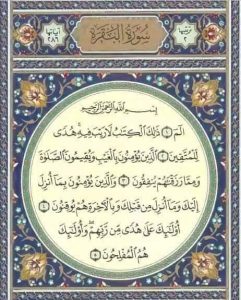 ترتيبها ٢
سُورَةُ الْبَقَرَة
آياتها ٢٨٦
بِسْمِ اللَّهِ الرَّحْمَٰنِ الرَّحِيمِ
الٓمٓ ١ ذَٰلِكَ الْكِتَٰبُ لَا رَيْبَ ۛ فِيهِ ۛ هُدًى
لِّلْمُتَّقِينَ ٢ الَّذِينَ يُؤْمِنُونَ بِالْغَيْبِ وَيُقِيمُونَ الصَّلَوٰةَ
وَمِمَّا رَزَقْنَٰهُمْ يُنفِقُونَ ٣ وَالَّذِينَ يُؤْمِنُونَ بِمَآ أُنزِلَ
إِلَيْكَ وَمَآ أُنزِلَ مِن قَبْلِكَ وَبِالْآخِرَةِ هُمْ يُوقِنُونَ ٤
أُو۟لَٰٓئِكَ عَلَىٰ هُدًى مِّن رَّبِّهِمْ ۖ وَأُو۟لَٰٓئِكَ
هُمُ الْمُفْلِحُونَ ٥